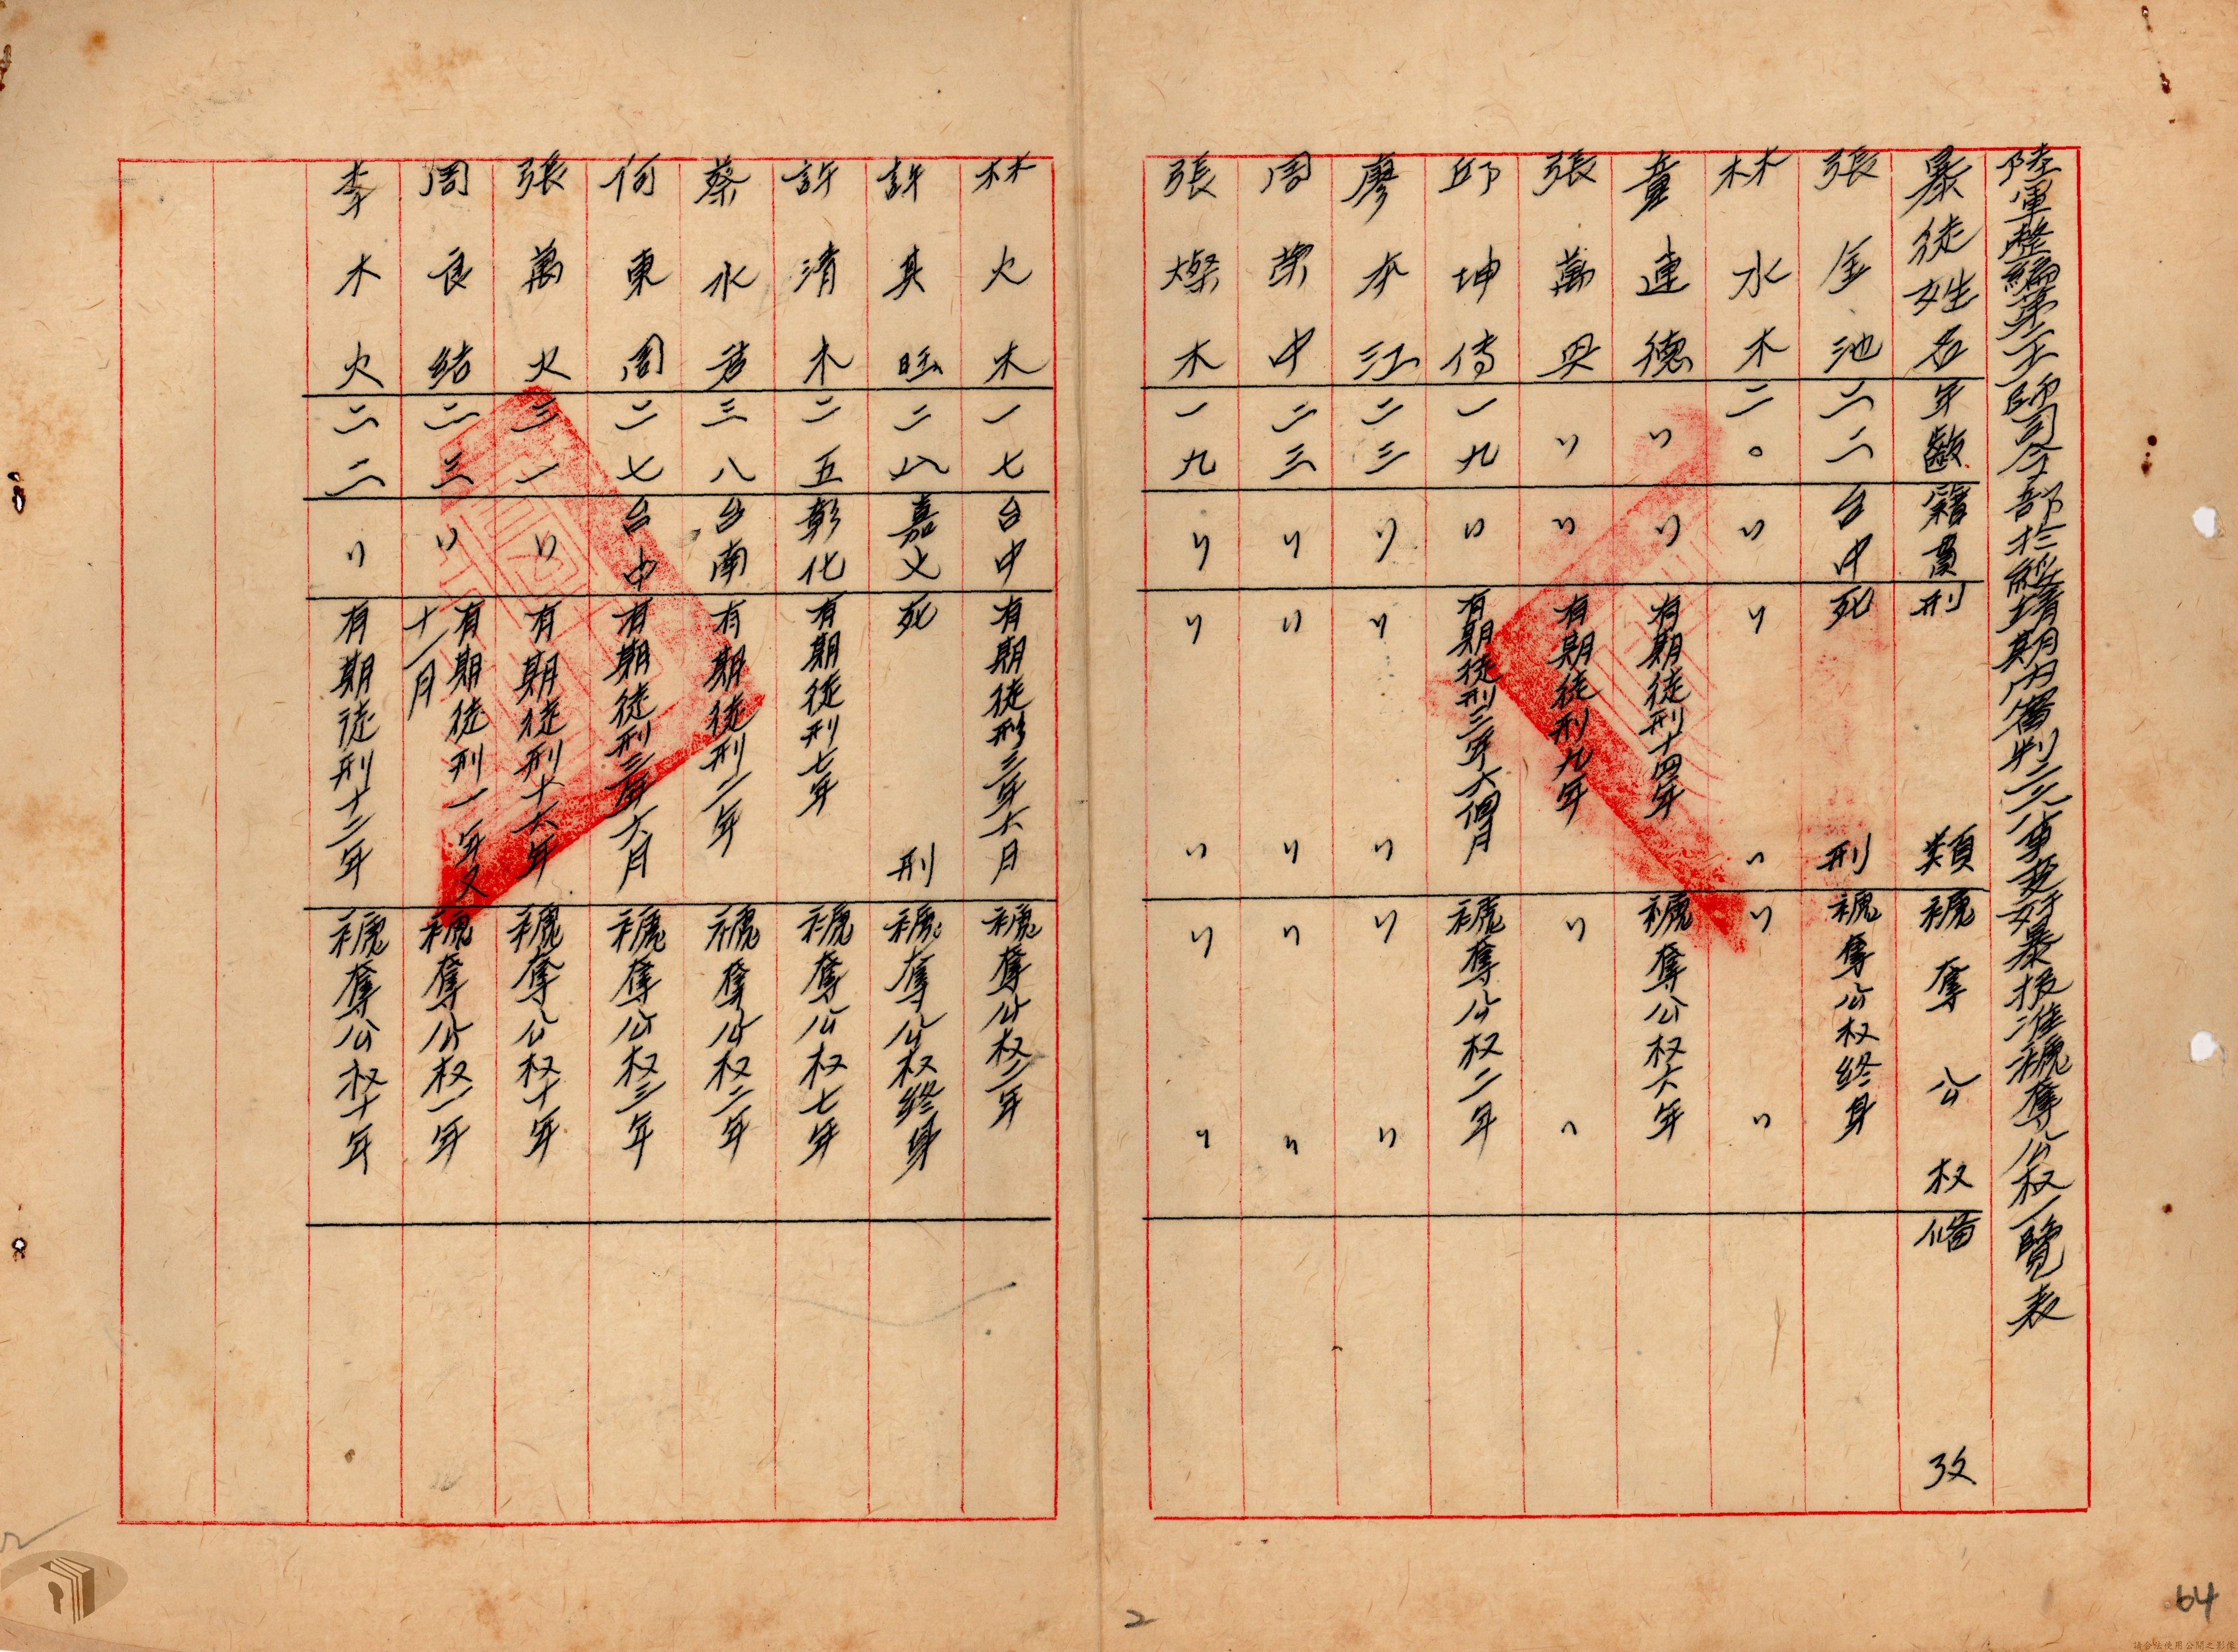 陸軍整編第二十一師司令部於綏靖期內審判二二八事変奸暴報准褫奪公权一覽表
暴徒姓名 年齡 籍貫 刑類 褫奪公权 備攷
張金池 二二 台中 死刑 褫奪公权終身
林水木 二〇 〃 〃 〃 〃 〃
童連德 〃 〃 有期徒刑十四年 褫奪公权六年
張萬 〃 〃 有期徒刑九年 〃 〃
邱坤传 一九 〃 有期徒刑三年六個月 褫奪公权二年
廖本江 二三 〃 〃 〃 〃 〃
周荣中 二三 〃 〃 〃 〃 〃
張燦木 一九 〃 〃 〃 〃 〃
林火木 一七 台中 有期徒刑三年六月 褫奪公权二年
許其旺 二八 嘉义 死刑 褫奪公权終身
許清木 二五 彰化 有期徒刑七年 褫奪公权七年
蔡水 三八 台南 有期徒刑二年 褫奪公权二年
何東周 二七 台中 有期徒刑三年六月 褫奪公权三年
張萬火 三一 〃 有期徒刑十六年 褫奪公权十年
周良結 二三 〃 有期徒刑一年又十一月 褫奪公权一年
李木火 二二 〃 有期徒刑十二年 褫奪公权十年
2
64